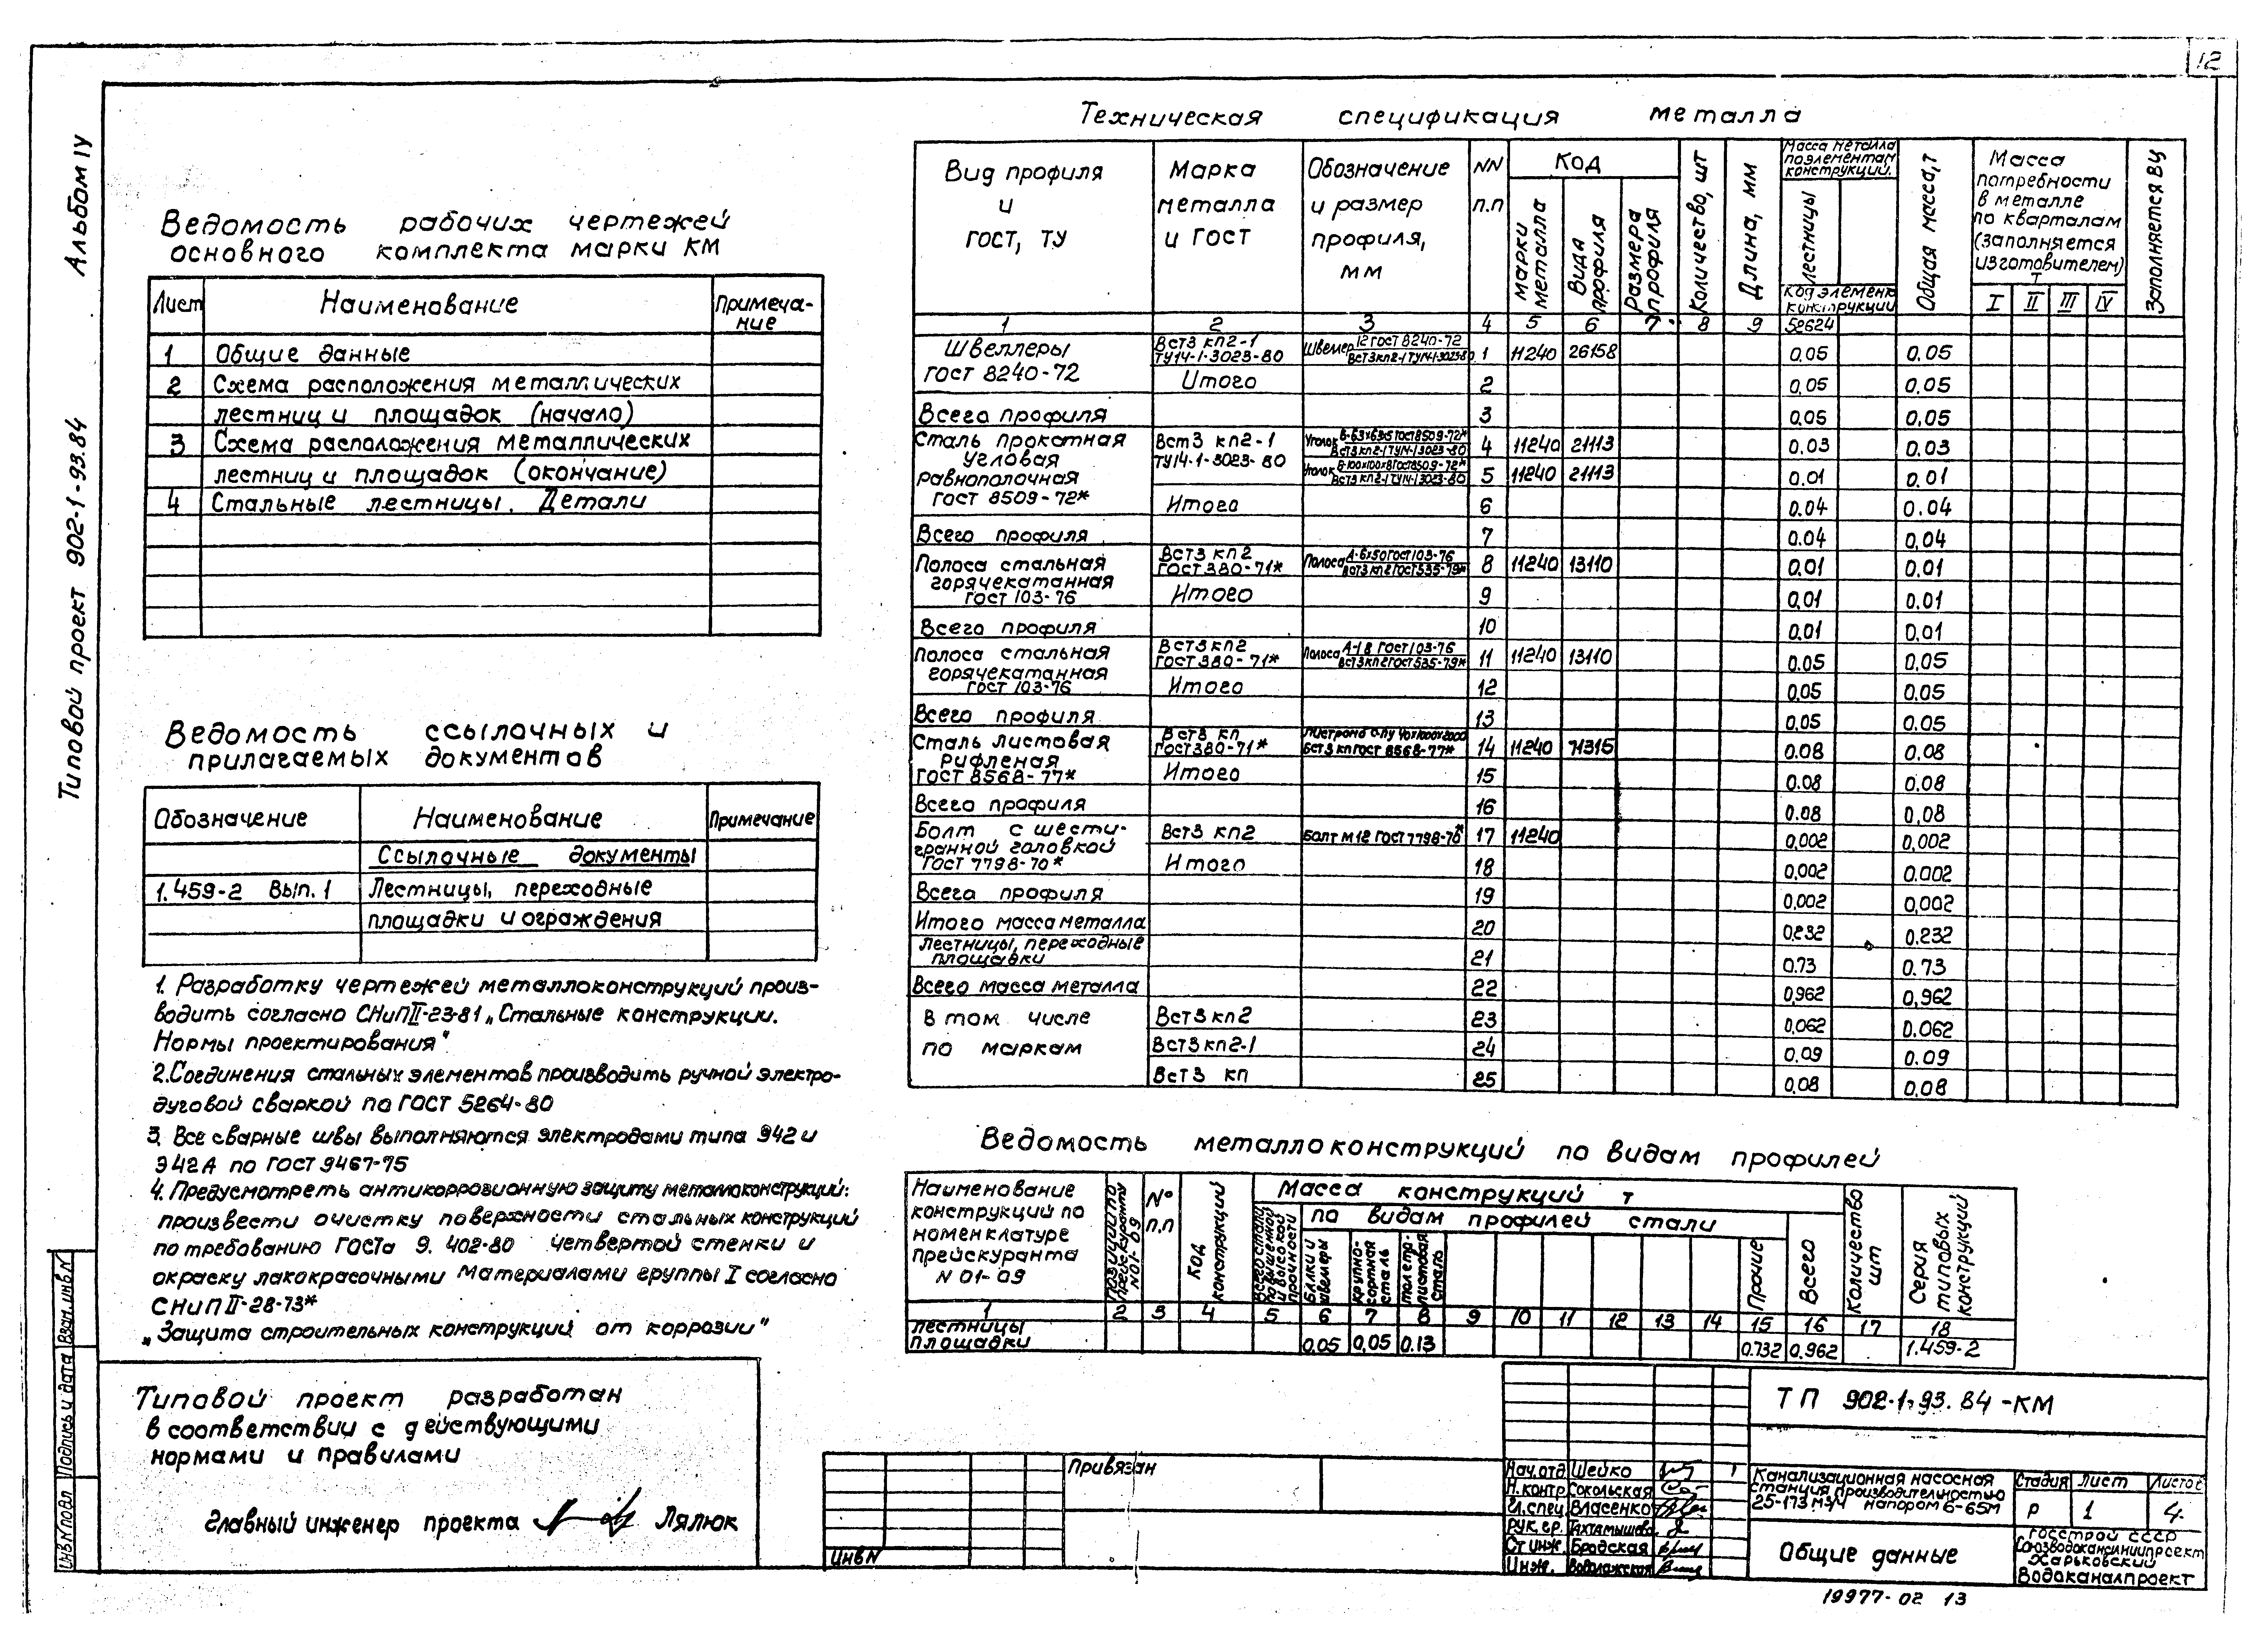 12
Альбом IV
Типовой проект 902-1-93.84
Ведомость рабочих чертежей
основного комплекта марки КМ
Лист Наименование Примеча-
ние
1 Общие данные
2 Схема расположения металлических
лестниц и площадок (начало)
3 Схема расположения металлических
лестниц и площадок (окончание)
4 Стальные лестницы. Детали
Ведомость ссылочных и
прилагаемых документов
Обозначение Наименование Примечание
Ссылочные документы
1.459-2 Вып. 1 Лестницы, переходные
площадки и ограждения
1. Разработку чертежей металлоконструкций произ-
водить согласно СНиП II-23-81 „Стальные конструкции.
Нормы проектирования"
2. Соединения стальных элементов производить ручной электро-
дуговой сваркой по ГОСТ 5264-80
3. Все сварные швы выполняются электродами типа Э42 и
Э42А по ГОСТ 9467-75
4. Предусмотреть антикоррозионную защиту металлоконструкций:
произвести очистку поверхности стальных конструкций
по требованию ГОСТа 9.402-80 четвертой стенки и
окраску лакокрасочными материалами группы I согласно
СНиП II-28-73*
„Защита строительных конструкций от коррозии"
Типовой проект разработан
в соответствии с действующими
нормами и правилами
Главный инженер проекта Лялюк
Инв N подл Подпись и дата Взам. инв N
Техническая спецификация металла
Вид профиля
и
ГОСТ, ТУ
Марка
металла
и ГОСТ
Обозначение
и размер
профиля,
мм
NN
п.п
Код
марки
металла
Вида
профиля
Размера
профиля
Количество, шт
Длина, мм
Масса металла
по элементам
конструкций.
Лестницы
Код элемента
конструкции
Общая масса, т
Масса
потребности
в металле
по кварталам
(заполняется
изготовителем)
т
I II III IV
Заполняется ВЦ
1 2 3 4 5 6 7 8 9 52624
Швеллеры
ГОСТ 8240-72
Вст3 кп2-1
ТУ14-1-3023-80
Швеллер 12 ГОСТ 8240-72
Вст3кп2-1 ТУ14-1-3023-80
1 11240 26158 0.05 0.05
Итого 2 0,05 0.05
Всего профиля 3 0.05 0,05
Сталь прокатная
угловая
равнополочная
ГОСТ 8509-72*
Вст3 кп2-1
ТУ14-1-3023-80
Уголок Б-63х63х5 ГОСТ 8509-72*
Вст3 кп2-1 ТУ14-1-3023-80
4 11240 21113 0.03 0.03
Уголок Б-100х100х8 ГОСТ 8509-72*
Вст3 кп2-1 ТУ14-1-3023-80
5 11240 21113 0.01 0.01
Итого 6 0.04 0.04
Всего профиля 7 0.04 0,04
Полоса стальная
горячекатанная
ГОСТ 103-76
Вст3 кп2
ГОСТ 380-71*
Полоса А-6х50 ГОСТ 103-76
Вст3 кп2 ГОСТ 535-79*
8 11240 13110 0.01 0.01
Итого 9 0,01 0.01
Всего профиля 10 0.01 0.01
Полоса стальная
горячекатанная
ГОСТ 103-76
Вст3 кп2
ГОСТ 380-71*
Полоса А-18 ГОСТ 103-76
Вст3кп2 ГОСТ 535-79*
11 11240 13110 0.05 0,05
Итого 12 0.05 0.05
Всего профиля 13 0,05 0.05
Сталь листовая
рифленая
ГОСТ 8568-77*
Вст3 кп
ГОСТ 380-71*
Вст3 кп ГОСТ 8568-77*
14 11240 71315 0.08 0.08
Итого 15 0.08 0.08
Всего профиля 16 0.08 0,08
Болт с шести-
гранной головкой
ГОСТ 7798-70*
Вст3 кп2 Болт М12 ГОСТ 7798-70* 17 11240 0,002 0,002
Итого 18 0,002 0.002
Всего профиля 19 0,002 0,002
Итого масса металла 20 0,232 0.232
Лестницы, переходные
площадки
21 0.73 0.73
Всего масса металла 22 0,962 0,962
В том числе Вст3 кп2 23 0,062 0.062
по маркам Вст3 кп2-1 24 0.09 0.09
Вст3 кп 25 0,08 0,08
Ведомость металлоконструкций по видам профилей
Наименование
конструкций по
номенклатуре
прейскуранта
N 01-09
Позиции по
прейскуранту
N01-09
№
п.п
Код
конструкций
Масса конструкций т
Всего стали
повышенной
и высокой
прочности
по видам профилей стали
Балки и
швеллеры
Крупно-
сортная
сталь
Толсто-
листовая
сталь
Прочие
Всего
Количество
шт
Серия
типовых
конструкций
1 2 3 4 5 6 7 8 9 10 11 12 13 14 15 16 17 18
Лестницы
площадки 0,05 0,05 0.13 0.732 0.962 1.459-2
Привязан
Инв N
ТП 902-1-93.84-КМ
Нач. отд Шейко
Н. контр Сокольская
Гл. спец. Власенко
Рук. гр. Тахтамышева
Ст инж. Бродская
Инж. Водолажская
Канализационная насосная
станция производительностью
25-173 м3/ч напором 6-65м
Стадия Лист Листов
Р 1 4.
Общие данные
Госстрой СССР
Союзводоканалниипроект
Харьковский
Водоканалпроект
19977-02 13